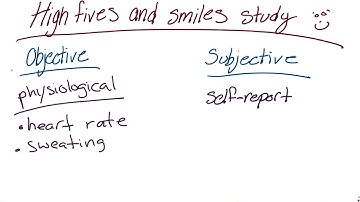 High fives and smiles study
Objective
Subjective
physiological
self-report
• heart rate
• sweating